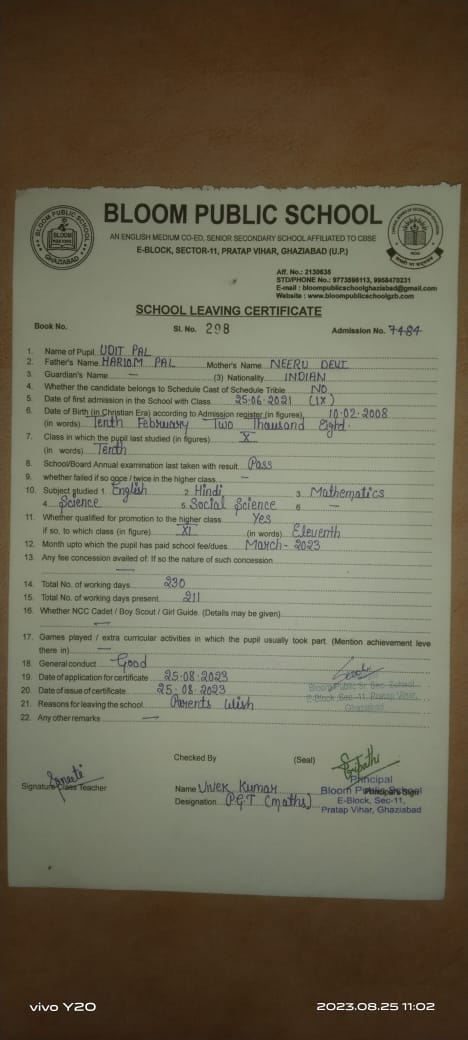 BLOOM PUBLIC SCHOOL
AN ENGLISH MEDIUM CO-ED, SENIOR SECONDARY SCHOOL AFFILIATED TO CBSE
E-BLOCK, SECTOR-11, PRATAP VIHAR, GHAZIABAD (U.P.)
Aff. No.: 2130635
STD/PHONE No.: 9773596113, 9958470231
E-mail : bloompublicschoolghaziabad@gmail.com
Website : www.bloompublicschoolgzb.com
SCHOOL LEAVING CERTIFICATE
Book No. Sl. No. 298 Admission No. 7484
1. Name of Pupil UDIT PAL
2. Father's Name HARIOM PAL Mother's Name NEERU DEVI
3. Guardian's Name — (3) Nationality INDIAN
4. Whether the candidate belongs to Schedule Cast of Schedule Trible NO
5. Date of first admission in the School with Class 25-06-2021 (IX)
6. Date of Birth (in Christian Era) according to Admission register (in figures) 10-02-2008
(in words) Tenth February Two Thousand Eight.
7. Class in which the pupil last studied (in figures) X
(in words) Tenth
8. School/Board Annual examination last taken with result Pass
9. whether failed if so once / twice in the higher class —
10. Subject studied 1. English 2. Hindi 3. Mathematics
4. Science 5. Social Science 6. —
11. Whether qualified for promotion to the higher class Yes
if so, to which class (in figure) XI (in words) Eleventh
12. Month upto which the pupil has paid school fee/dues March-2023
13. Any fee concession availed of: If so the nature of such concession
—
14. Total No. of working days 230
15. Total No. of working days present 211
16. Whether NCC Cadet / Boy Scout / Girl Guide. (Details may be given)
—
17. Games played / extra curricular activities in which the pupil usually took part. (Mention achievement leve
there in) —
18. General conduct Good
19. Date of application for certificate 25-08-2023
20. Date of issue of certificate 25-08-2023
21. Reasons for leaving the school Parents Wish
22. Any other remarks —
Bloom Public Sr. Sec. School
E-Block, Sec-11, Pratap Vihar,
Ghaziabad
Checked By (Seal)
Signature Class Teacher
Name Vivek Kumar
Designation P.G.T (maths)
Principal
Bloom Public School
Principal's Sign
E-Block, Sec-11,
Pratap Vihar, Ghaziabad
vivo Y20
2023.08.25 11:02